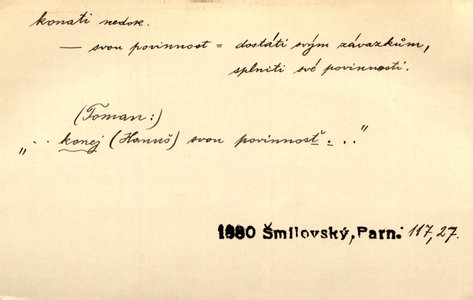 konati nedok.
— svou povinnost = dostáti svým závazkům,
splniti své povinnosti.
(Toman:)
„.. konej (Hanuš) svou povinnosť..."
1880 Šmilovský, Parn. 117,27.